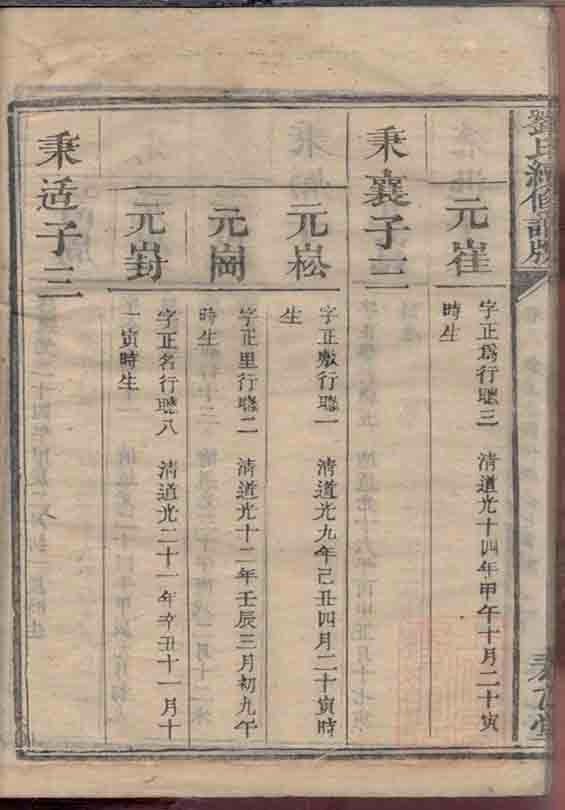 劉氏續修譜牒
元崔
字正爲行聰三　清道光十四年甲午十月二十寅
時生
秉襄子三
元崧
字正敷行聰一　清道光九年己丑四月二十寅時
生
元崗
字正里行聰二　清道光十二年壬辰三月初九午
時生
元崶
字正名行聰八　清道光二十一年辛丑十一月十
一寅時生
秉适子三